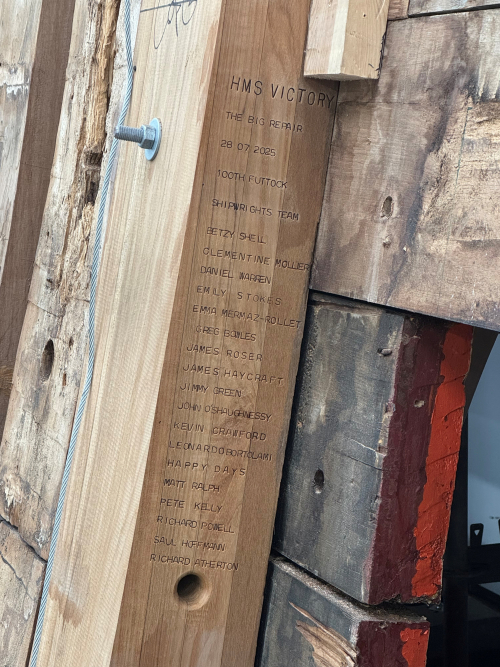 HMS VICTORY
THE BIG REPAIR
28 07 2025
100TH FUTTOCK
SHIPWRIGHTS TEAM
BETZY SHEIL
CLEMENTINE MOLLIER
DANIEL WARREN
EMILY STOKES
EMMA MERMAZ-ROLLET
GREG GOWLES
JAMES ROSER
JAMES HAYCRAFT
JIMMY GREEN
JOHN O'SHAUGHNESSY
KEVIN CRAWFORD
LEONARDO BORTOLAMI
HAPPY DAYS
MATT RALPH
PETE KELLY
RICHARD POWELL
SAUL HOFFMANN
RICHARD ATHERTON